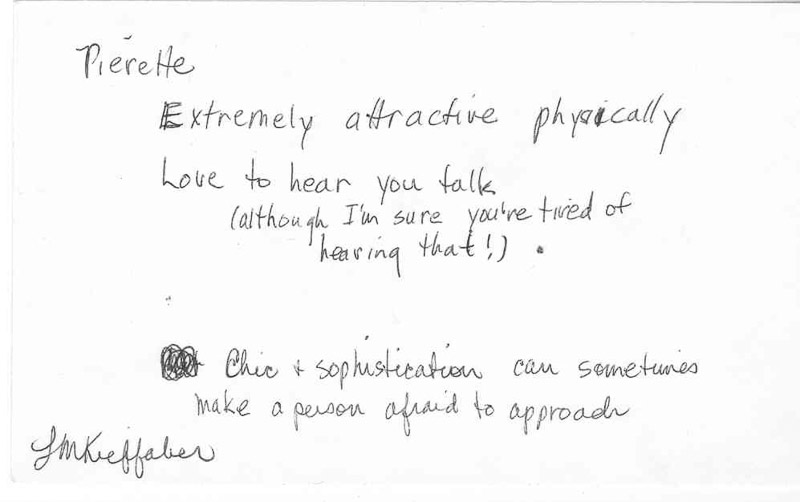 Pierette
Extremely attractive physically
Love to hear you talk
(although I'm sure you're tired of
hearing that!).
Chic + sophistication can sometimes
make a person afraid to approach
LMKieffaber